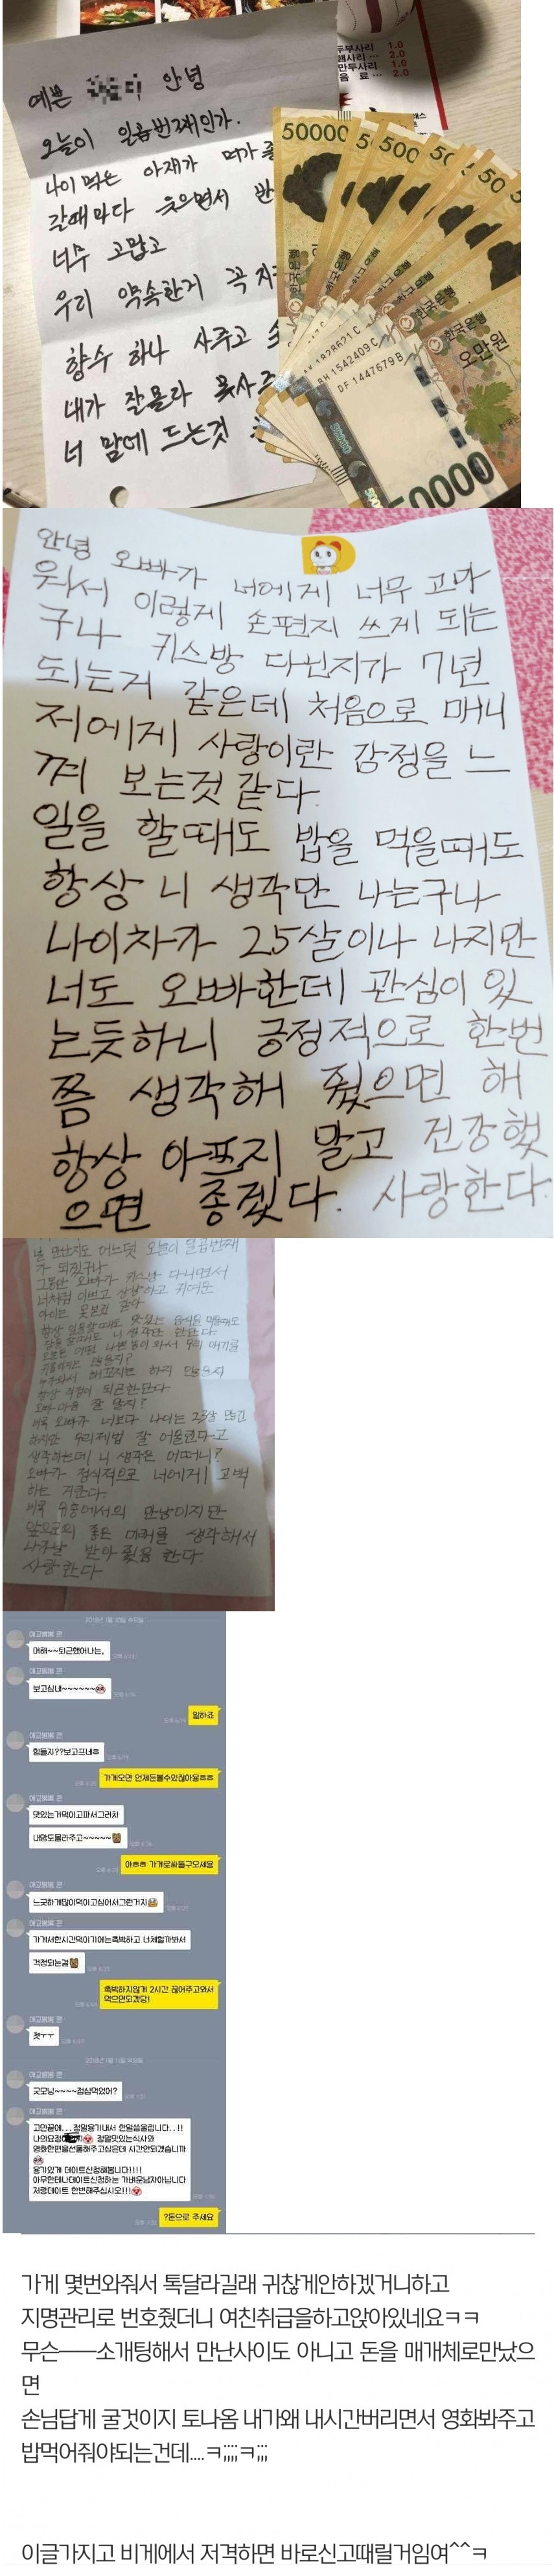 두부사리 1.0
2.0
만두사리 1.0
음 료 ... 2.0
예쁜 안녕
오늘이 일곱번째인가.
나이 먹은 아재가 뭐가 좋
갈때마다 웃으면서 반
너무 고맙고
우리 약속한거 꼭 지
향수 하나 사주고
내가 잘몰라 못사
너 맘에 드는것
50000
500
50
한국은행
오만원
BH 1542409C
DF 1447679B
안녕 오빠가 너에게 너무 고마
워서 이렇게 손편지 쓰게 되는
구나 키스방 다닌지가 7년
되는거 같은데 처음으로 매니
저에게 사랑이란 감정을 느
껴 보는것 같다
일을 할때도 밥을 먹을때도
항상 니 생각만 나는구나
나이차가 25살이나 나지만
너도 오빠한데 관심이 있
는듯하니 긍정적으로 한번
쯤 생각해 줬으면 해
항상 아프지 말고 건강했
으면 좋겠다. 사랑한다.
널 만난지도 어느덧 오늘이 일곱번째
가 되었구나
그동안 오빠가 키스방 다니면서
너처럼 이쁘고 상냥하고 귀여운
아이는 못본것 같다
항상 퇴근한단다
오빠 마음 잘 알지?
비록 오빠가 너보다 나이는 23살 많고
하지만 우리제법 잘 어울린다고
생각하는데 니 생각은 어떠니?
오빠가 정식적으로 너에게 고백
하는 거란다.
비록 유흥에서의 만남이지만
앞으로의 좋은 미래를 생각해서
사랑한다
2018년 1월 10일 수요일
머해~~퇴근했어나는,
보고싶네~~~~~~
일하죠
힘들지??보고프네ㅎ
가게오면 언제든볼수있잖아용ㅎㅎ
맛있는거먹이고파서그러치
내맘도몰라주고~~~~~
아ㅎㅎ 가게로싸들구오세용
느긋하게많이먹이고싶어서그런거지
가게서한시간먹이기에는촉박하고 너체할까봐서
걱정되는걸
촉박하지않게 2시간 끊어주고와서
먹으면되겠당!
쳇ㅜㅜ
2018년 1월 11일 목요일
굿모닝~~~~점심먹었어?
고민끝에...정말용기내서 한말씀올립니다..!!
나의요정 정말맛있는식사와
영화한편을선물해주고싶은데 시간안되겠습니까
용기있게 데이트신청해봅니다!!!!
아무한테나데이트신청하는 가벼운남자아닙니다
저랑데이트 한번해주십시오!!!
?돈으로 주세요
가게 몇번와줘서 톡달라길래 귀찮게안하겠거니하고
지명관리로 번호줬더니 여친취급을하고앉아있네요ㅋㅋ
무슨──소개팅해서 만난사이도 아니고 돈을 매개체로만났으
면
손님답게 굴것이지 토나옴 내가왜 내시간버리면서 영화봐주고
밥먹어줘야되는건데....ㅋ;;;;ㅋ;;;
이글가지고 비게에서 저격하면 바로신고때릴거임여^^ㅋ